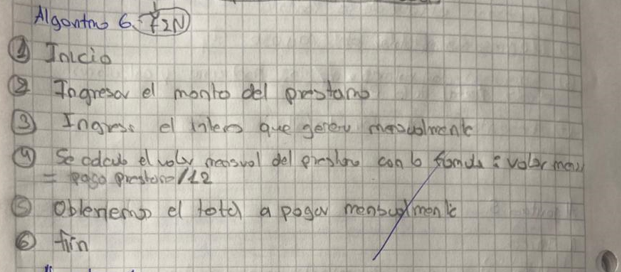 Algoritmo 6. F2N
① Inicio
② Ingresar el monto del prestamo
③ Ingrese el interes que genera mensualmente
④ Se calcula el valor mensual del prestamo con la formula : valor men
= pago prestamo/12
⑤ Obtenemos el total a pagar mensualmente
⑥ fin